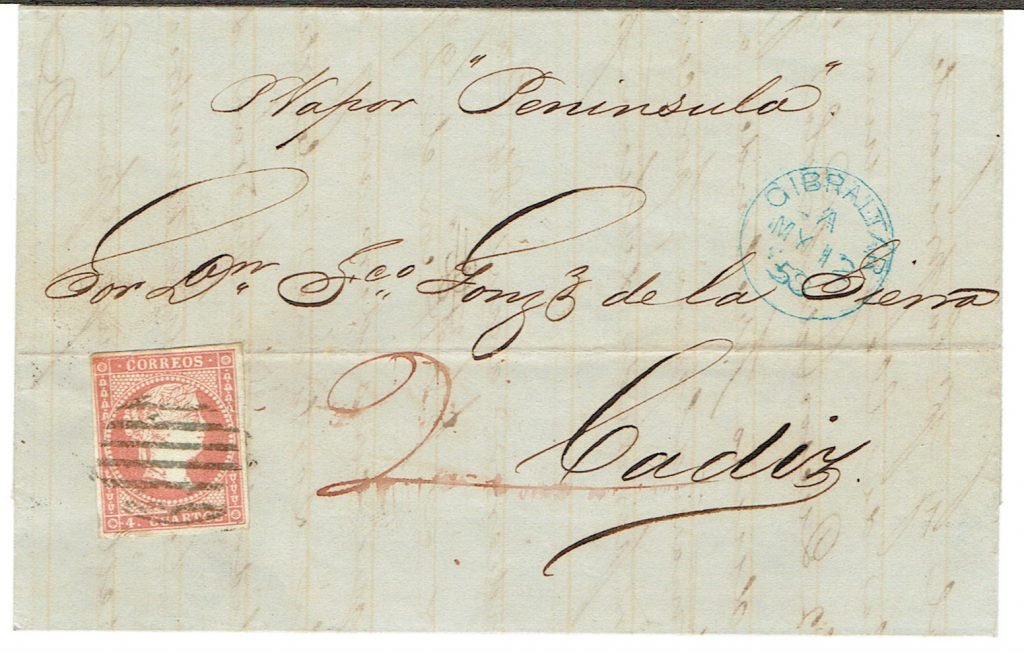 P Vapor "Peninsula".
GIBRALTAR
A
MY 12
Sor Dn. Fco. Gonz de la Sierra
CORREOS
2
Cadiz.
4. CUARTOS